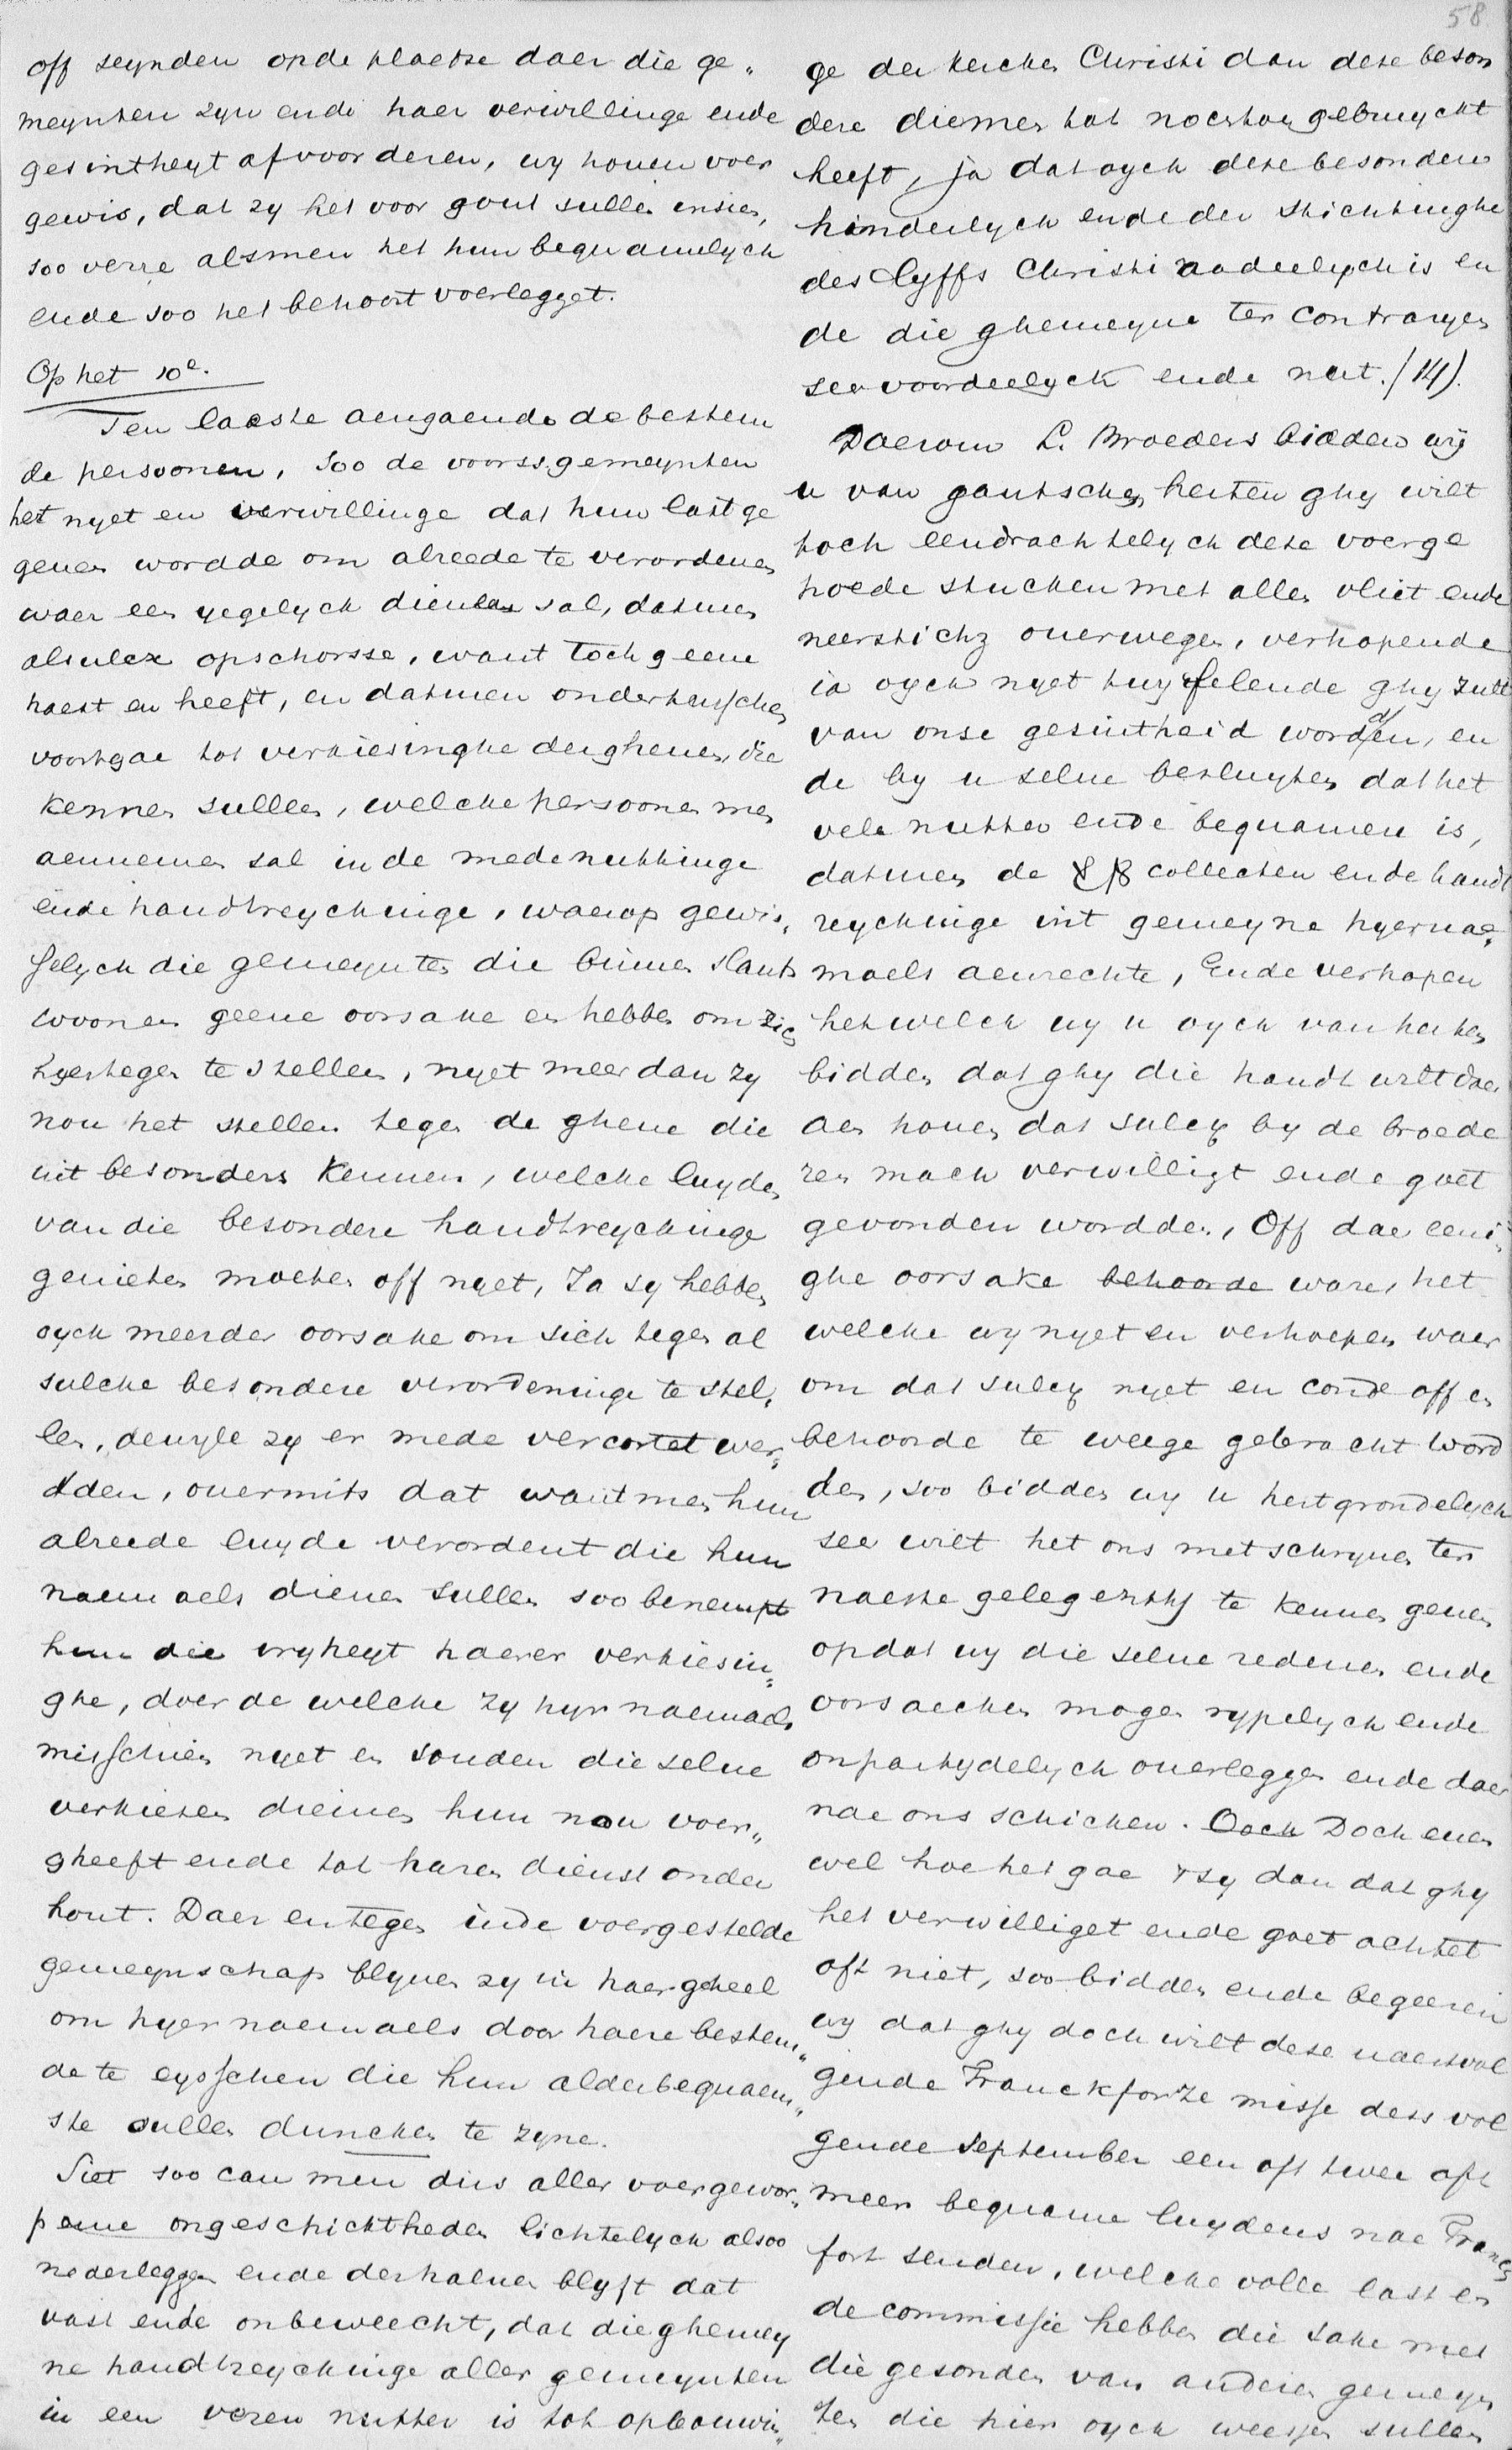 58
off seynden op de plaetse daer die ge„
meynten zyn ende haer verwillinge ende
gesintheyt afvoorderen, wy houen voer
gewis, dat zy het voor gout sullen insien,
soo verre alsmen het hun bequamelyck
ende soo het behoort voerlegget.
Op het 10e.
Ten laeste aengaende de bestem
de persoonen, soo de voorss. gemeynten
het nyet en verwillinge dat hun last ge
geuen wordde om alreede te verordenen
waer een yegelyck dienen sal, datmen
alsulcx opschorsse, want toch geene
haest en heeft, en datmen ondertusschen
voortgae tot verkiesinghe derghenen, die
kennen sullen, welcke persoonen men
aennemen sal in de medenuttinge
ende handtreyckinge, waerop gewis„
selyck die gemeynten die binnen slants
woonen geene oorsake en hebben om zich
hyertegen te stellen, nyet meer dan zy
nou het stellen tegen de ghene die
int besonders kennen, welcke luyden
van die besondere handtreyckinge
genieten moeten off nyet, Ja sy hebben
oyck meerder oorsake om sich tegen al
sulcke besondere verordeninge te stel„
len, deuyle zy er mede vercortet wer„
dden, ouermits dat want men hun
alreede luyde verordent die hun
naemaels dienen sullen soo benempt
hun die vryheyt haerer verkiesin„
ghe, doer de welcke zy hyr naemaels
misschien nyet en souden die selue
verkiesen diemen hun nou voer„
gheeft ende tot haren dienst onder
hout. Daer entegen inde voergestelde
gemeynschap blyuen zy in haer geheel
om hyer naemaels door haere bestem„
de te eysschen die hun alderbequaem„
ste sullen duncken te zyne.
Siet soo can men dus aller voergewor„
pene ongeschicktheden lichtelyck alsoo
nederleggen ende derhaluen blyft dat
vast ende onbeweecht, dat die ghemey
ne handtreyckinge aller gemeynten
in een veren nutter is tot opbouwin„
ge der kercken Christi dan dese beson
dere diemen tot noch toe gebruyckt
heeft, ja dat oyck dese besondere
hinderlyck ende der stichtinghe
des lyffs Christi nadeelyck is en
de die ghemeyne ter contrarien
seer voordeelyck ende nut. (14).
Daerom L. Broeders bidden wij
u van gantscher herten ghy wilt
toch eendrachtelyck dese voerge
hoede stucken met allen vliet ende
neersticheyt ouerwegen, verhopende
ia oyck nyet twyfelende ghy zult
van onse gesintheid worden, en
de by u selue besluyten dat het
vele nutter ende bequamer is,
datmen de collecten ende handt
reyckinge int gemeyne hyernae„
maels aenrechte, Ende verhopen
hetwelck wy u oyck van herten
bidden dat ghy die handt wilt daer
aen houen dat sulcx by de broede
ren mach verwilligt ende goet
gevonden wordden, Off daer eeni„
ghe oorsake behoorde waren, het
welcke wy nyet en verhoepen waer
om dat sulcx nyet en conde off en
behoorde te weege gebracht word
den, soo bidden wy u hertgrondelyck
seer wilt het ons met schryuen ter
naester gelegentheyt te kennen geuen
opdat wy die selue redenen ende
oorsaecken mogen rypelyck ende
onpartydelyck ouerleggen ende daer
nae ons schicken. Oock Doch euen
wel hoe het gae tsy dan dat ghy
het verwilliget ende goet achtet
oft niet, soo bidden ende begeeren
wy dat ghy doch wilt dese naestvol
gende Franckforter misse dess vol
gende September een oft twee oft
meer bequame luydens nae Franc
fort senden, welcke volle last en
de commissie hebben die sake met
die gesonden van anderen gemeyn
ten die hier oyck weesen sullen